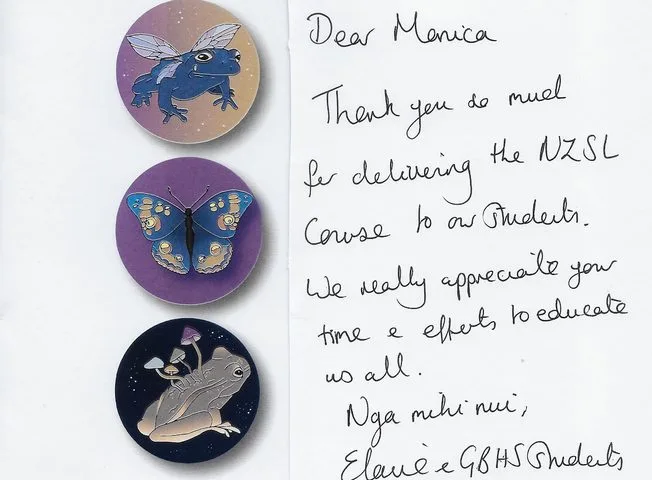 Dear Monica
Thank you so much
for delivering the NZSL
Course to our Students.
We really appreciate your
time & efforts to educate
us all.
Nga mihi nui,
Elaine & GBHS Students